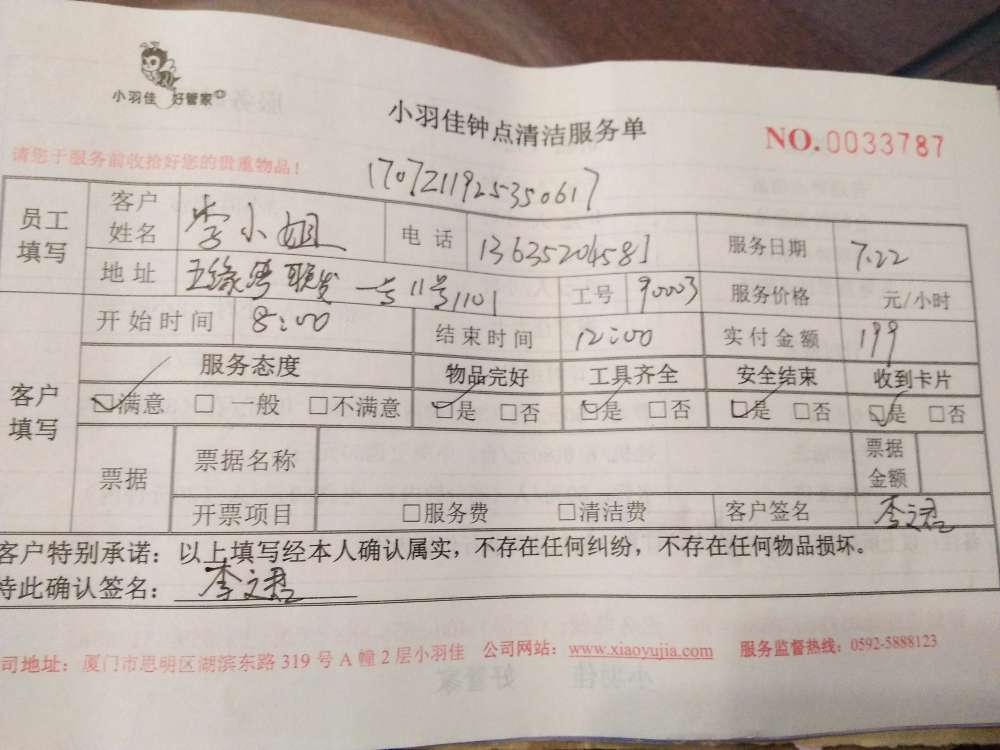 小羽佳 好管家
小羽佳钟点清洁服务单
NO.0033787
请您于服务前收拾好您的贵重物品！
1707211925350617
员工填写 客户姓名 李小姐 电话 13635204581 服务日期 7.22
地址 五缘湾联发一号11号1101 工号 90003 服务价格 元/小时
客户填写 开始时间 8:00 结束时间 12:00 实付金额 199
服务态度 物品完好 工具齐全 安全结束 收到卡片
☑满意 □一般 □不满意 ☑是 □否 ☑是 □否 ☑是 □否 ☑是 □否
票据 票据名称 票据金额
开票项目 □服务费 □清洁费 客户签名 李文君
客户特别承诺：以上填写经本人确认属实，不存在任何纠纷，不存在任何物品损坏。
特此确认签名：李文君
司地址：厦门市思明区湖滨东路 319 号 A 幢 2 层小羽佳 公司网站：www.xiaoyujia.com 服务监督热线：0592-5888123